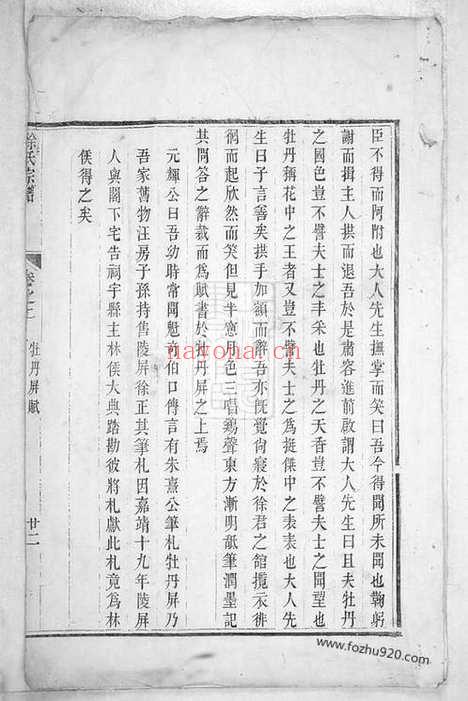 臣不得而阿附也大人先生撫掌而笑曰吾今得聞所未聞也鞠躬
謝而揖主人拱而退吾於是肅容進前啟謂大人先生曰且夫牡丹
之國色豈不譬夫士之丰采也牡丹之天香豈不譬夫士之聞望也
牡丹稱花中之王者又豈不譬夫士之為挺傑中之表表也大人先
生曰子言善矣拱手加額而辭吾亦既覺尚寢於徐君之館攬衣徘
徊而起欣然而笑但見半窻月色三唱鷄聲東方漸明舐筆潤墨記
其問答之辭裁而為賦書於牡丹屏之上焉
元輝公曰吾幼時常聞魁奇伯口傳言有朱熹公筆札牡丹屏乃
吾家舊物汪房子孫持售陵屏徐正其筆札因嘉靖十九年陵屏
人與閣下宅告祠宇縣主林侯大典踏勘彼將札獻此札竟為林
侯得之矣
徐氏宗譜
卷之二
牡丹屏賦
廿二
navona.cn
www.fozhu920.com